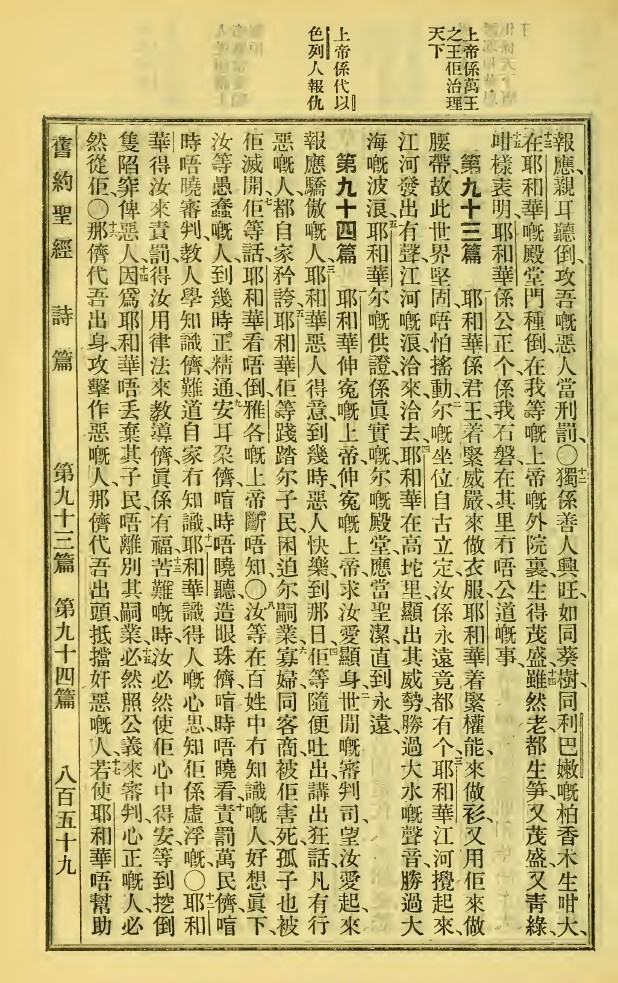 上帝係萬王
之王佢治理
天下
上帝係代以
色列人報仇
報應、親耳聽倒、攻吾嘅惡人當刑罰、○十二獨係善人興旺、如同葵樹、同利巴嫩嘅柏香木生咁大、
十三在耶和華嘅殿堂門種倒、在我等嘅上帝嘅外院裏生得茂盛、十四雖然老都生笋、又茂盛又靑綠、
十五咁樣表明、耶和華係公正个、係我石磐、在其里冇唔公道嘅事
第九十三篇 耶和華係君王、着緊威嚴來做衣服、耶和華着緊權能、來做衫、又用佢來做
腰帶、故此世界堅固、唔怕搖動、二尔嘅坐位自古立定、汝係永遠竟都有个、三耶和華江河攪起來、
江河發出有聲、江河嘅浪洽來洽去、四耶和華在高坨里、顯出其威勢、勝過大水嘅聲音、勝過大
海嘅波浪、五耶和華尔嘅供證係眞實嘅、尔嘅殿堂應當聖潔、直到永遠
第九十四篇 耶和華伸寃嘅上帝、伸寃嘅上帝、求汝愛顯身、二世閒嘅審判司、望汝愛起來、
報應驕傲嘅人、三耶和華惡人得意到幾時、惡人快樂到那日、四佢等隨便吐出講出狂話、凡有行
惡嘅人、都自家矜誇、五耶和華佢等踐踏尔子民、困迫尔嗣業、六寡婦同客商被佢害死、孤子也被
佢滅開、七佢等話、耶和華看唔倒、雅各嘅上帝斷唔知、○八汝等在百姓中冇知識嘅人、好想眞下、
汝等愚蠢嘅人、到幾時正精通、九安耳朶儕、喑時唔曉聽、造眼珠儕、喑時唔曉看、十責罰萬民儕、喑
時唔曉審判、教人學知識儕、難道自家冇知識、十一耶和華識得人嘅心思、知佢係虛浮嘅、○十二耶和
華得汝來責罰、得汝用律法來教導儕、眞係有福、十三苦難嘅時、汝必然使佢心中得安、等到挖倒
隻陷穽俾惡人、十四因爲耶和華唔丢棄其子民、唔離別其嗣業、十五必然照公義來審判、心正嘅人、必
然從佢、○十六那儕代吾出身、攻擊作惡嘅人、那儕代吾出頭、抵擋奸惡嘅人、十七若使耶和華唔幫助
舊約聖經 詩篇 第九十三篇 第九十四篇 八百五十九